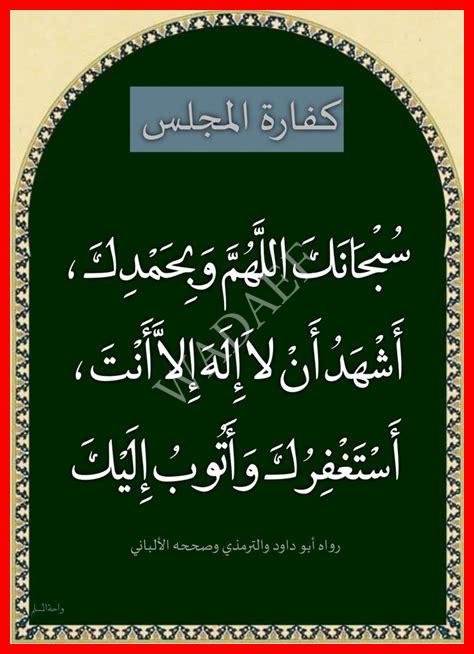 كفارة المجلس
سُبْحَانَكَ اللَّهُمَّ وَبِحَمْدِكَ،
أَشْهَدُ أَنْ لا إِلَهَ إِلاَّ أَنْتَ،
أَسْتَغْفِرُكَ وَأَتُوبُ إِلَيْكَ
WADAEF
رواه أبو داود والترمذي وصححه الألباني
واحة المسلم